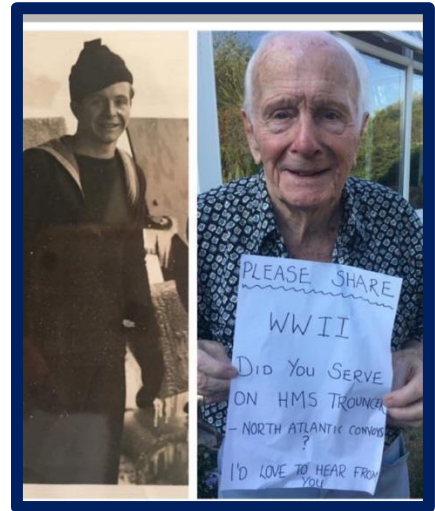 PLEASE SHARE
WWII
DID YOU SERVE
ON HMS TROUNCER
- NORTH ATLANTIC CONVOYS
?
I'D LOVE TO HEAR FROM
YOU